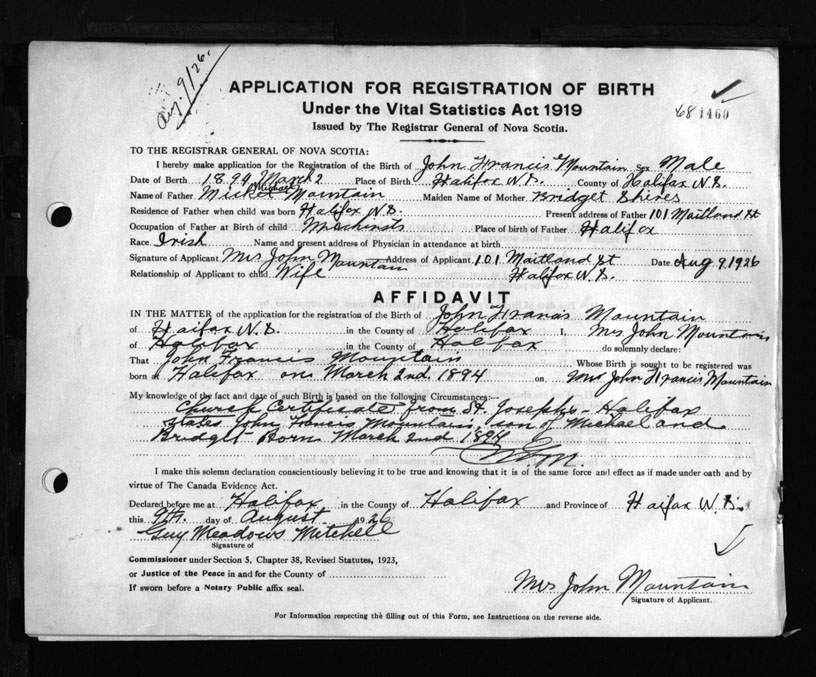 Aug. 9/26.
APPLICATION FOR REGISTRATION OF BIRTH
Under the Vital Statistics Act 1919
68 1460
Issued by The Registrar General of Nova Scotia.
TO THE REGISTRAR GENERAL OF NOVA SCOTIA:
I hereby make application for the Registration of the Birth of John Francis Mountain Sex Male
Date of Birth 1894 March 2 Place of Birth Halifax N.S. County of Halifax N.S.
Michael
Name of Father Mountain Maiden Name of Mother Bridget Shires
Residence of Father when child was born Halifax N.S. Present address of Father 101 Maitland St
Occupation of Father at Birth of child Place of birth of Father Halifax
Race Irish Name and present address of Physician in attendance at birth
Signature of Applicant Mrs John Mountain Address of Applicant 101 Maitland St Date Aug 9 1926
Relationship of Applicant to child Wife Halifax N.S.
AFFIDAVIT
IN THE MATTER of the application for the registration of the Birth of John Francis Mountain
of Haifax N.S. in the County of Halifax I, Mrs John Mountain
of Halifax in the County of Halifax do solemnly declare:
That John Francis Mountain Whose Birth is sought to be registered was
born at Halifax on March 2nd 1894 on Mrs John Francis Mountain
My knowledge of the fact and date of such Birth is based on the following Circumstances:—
Church Certificate from St. Joseph's - Halifax
states John Francis Mountain, son of Michael and
Bridget Born March 2nd 1894
I make this solemn declaration conscientiously believing it to be true and knowing that it is of the same force and effect as if made under oath and by
virtue of The Canada Evidence Act.
Declared before me at Halifax in the County of Halifax and Province of Haifax N.S.
this 9th. day of August 1926
Guy Meadows Mitchell
Signature of
Commissioner under Section 5, Chapter 38, Revised Statutes, 1923,
or Justice of the Peace in and for the County of
If sworn before a Notary Public affix seal.
Mrs John Mountain
Signature of Applicant.
For Information respecting the filling out of this Form, see Instructions on the reverse side.